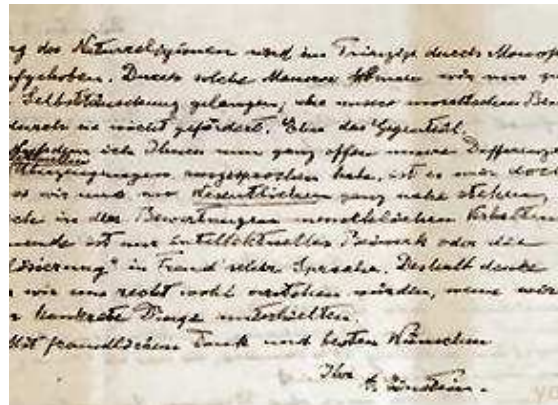 ng der Naturreligionen wird im Prinzip durch Monop
fgehoben. Durch solche Mauern können wir nur zu
Selbsttäuschung gelangen; aber unser moralischen Be
durch sie nicht gefördert. Eher das Gegenteil.
Nachdem ich Ihnen nun ganz offen unsere Differenzen
intellektuellen
Überzeugungen ausgesprochen habe, ist es mir doch
ss wir uns im Wesentlichen ganz nahe stehen,
ch in den Bewertungen menschlichen Verhaltens
nende ist nur intellektuelles Beiwerk oder die
lisierung" in Freud'scher Sprache. Deshalb denke
s wir uns recht wohl verstehen würden, wenn wir
r konkrete Dinge unterhielten.
Mit freundlichem Dank und besten Wünschen
Ihr
A. Einstein.